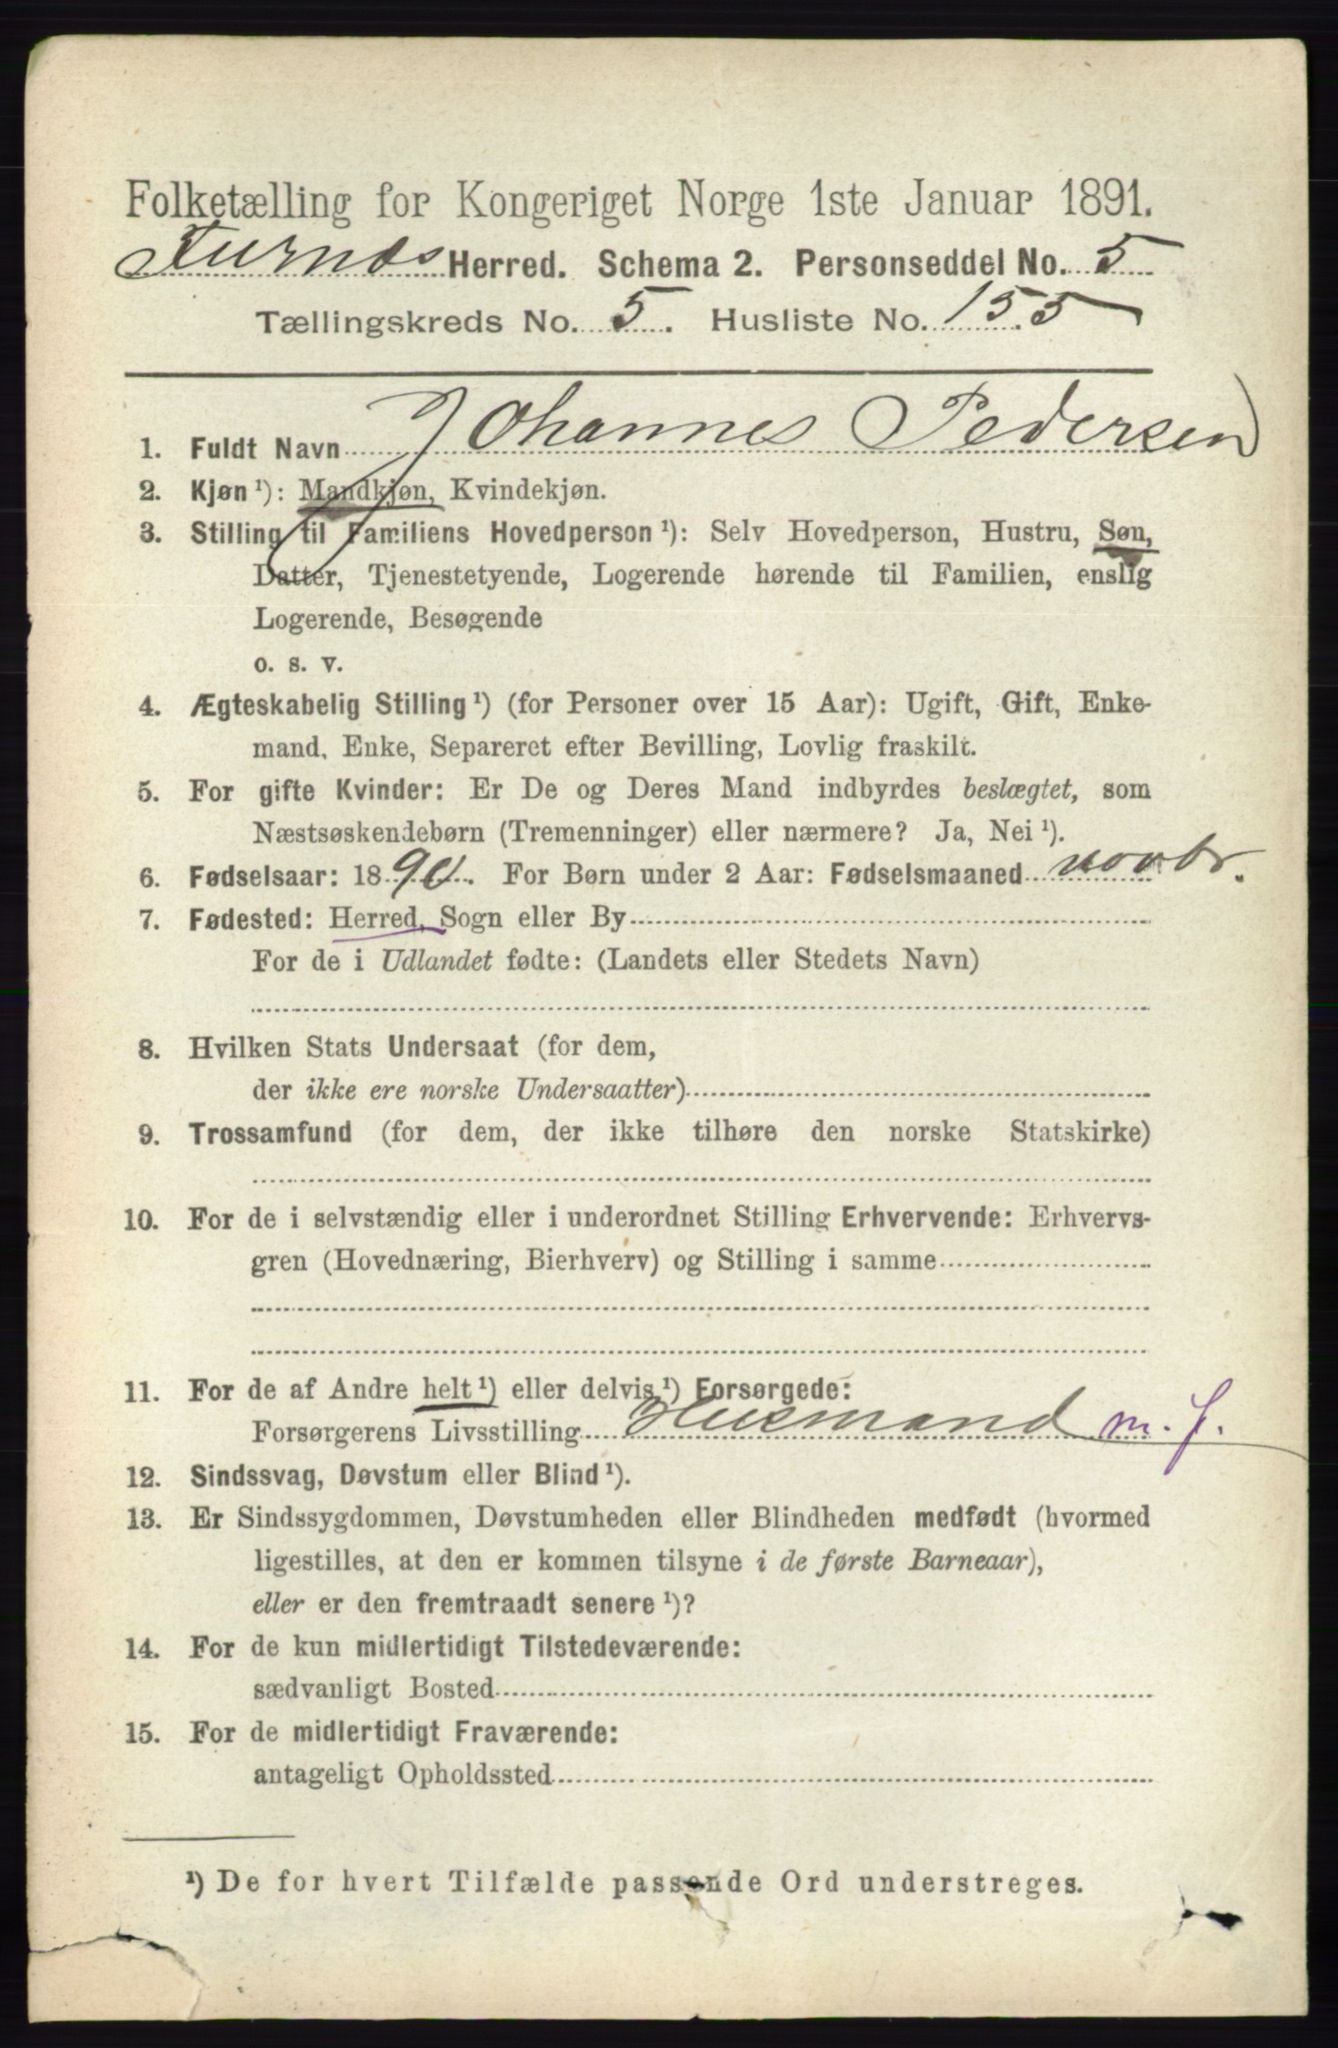 Folketælling for Kongeriget Norge 1ste Januar 1891.
Furnæs Herred. Schema 2. Personseddel No. 5
Tællingskreds No. 5. Husliste No. 155
1. Fuldt Navn Johannes Pedersen
2. Kjøn¹): Mandkjøn, Kvindekjøn.
3. Stilling til Familiens Hovedperson¹): Selv Hovedperson, Hustru, Søn,
Datter, Tjenestetyende, Logerende hørende til Familien, enslig
Logerende, Besøgende
o. s. v.
4. Ægteskabelig Stilling¹) (for Personer over 15 Aar): Ugift, Gift, Enke-
mand, Enke, Separeret efter Bevilling, Lovlig fraskilt.
5. For gifte Kvinder: Er De og Deres Mand indbyrdes beslægtet, som
Næstsøskendebørn (Tremenninger) eller nærmere? Ja, Nei¹).
6. Fødselsaar: 1890. For Børn under 2 Aar: Fødselsmaaned novbr.
7. Fødested: Herred, Sogn eller By
For de i Udlandet fødte: (Landets eller Stedets Navn)
8. Hvilken Stats Undersaat (for dem,
der ikke ere norske Undersaatter)
9. Trossamfund (for dem, der ikke tilhøre den norske Statskirke)
10. For de i selvstændig eller i underordnet Stilling Erhvervende: Erhvervs-
gren (Hovednæring, Bierhverv) og Stilling i samme
11. For de af Andre helt¹) eller delvis¹) Forsørgede:
Forsørgerens Livsstilling Husmand m. j.
12. Sindssvag, Døvstum eller Blind¹).
13. Er Sindssygdommen, Døvstumheden eller Blindheden medfødt (hvormed
ligestilles, at den er kommen tilsyne i de første Barneaar),
eller er den fremtraadt senere¹)?
14. For de kun midlertidigt Tilstedeværende:
sædvanligt Bosted
15. For de midlertidigt Fraværende:
antageligt Opholdssted
¹) De for hvert Tilfælde passende Ord understreges.